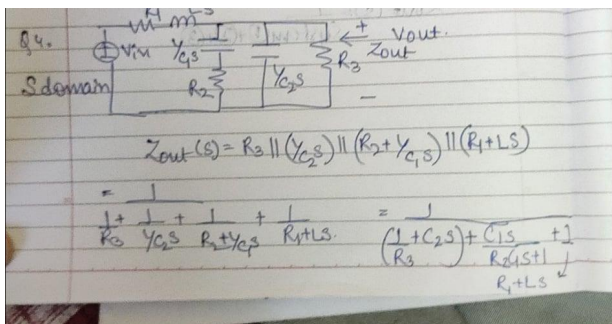 R1 LS
Q4.
Vin 1/C1S R2 1/C2S R3 + Vout.
Zout
-
S domain
Zout(s) = R3 || (1/C2S) || (R2 + 1/C1S) || (R1 + LS)
= 1 / (1/R3 + 1/(1/C2S) + 1/(R2 + 1/C1S) + 1/(R1 + LS)) = 1 / ((1/R3 + C2S) + C1S/(R2C1S + 1) + 1/(R1 + LS))